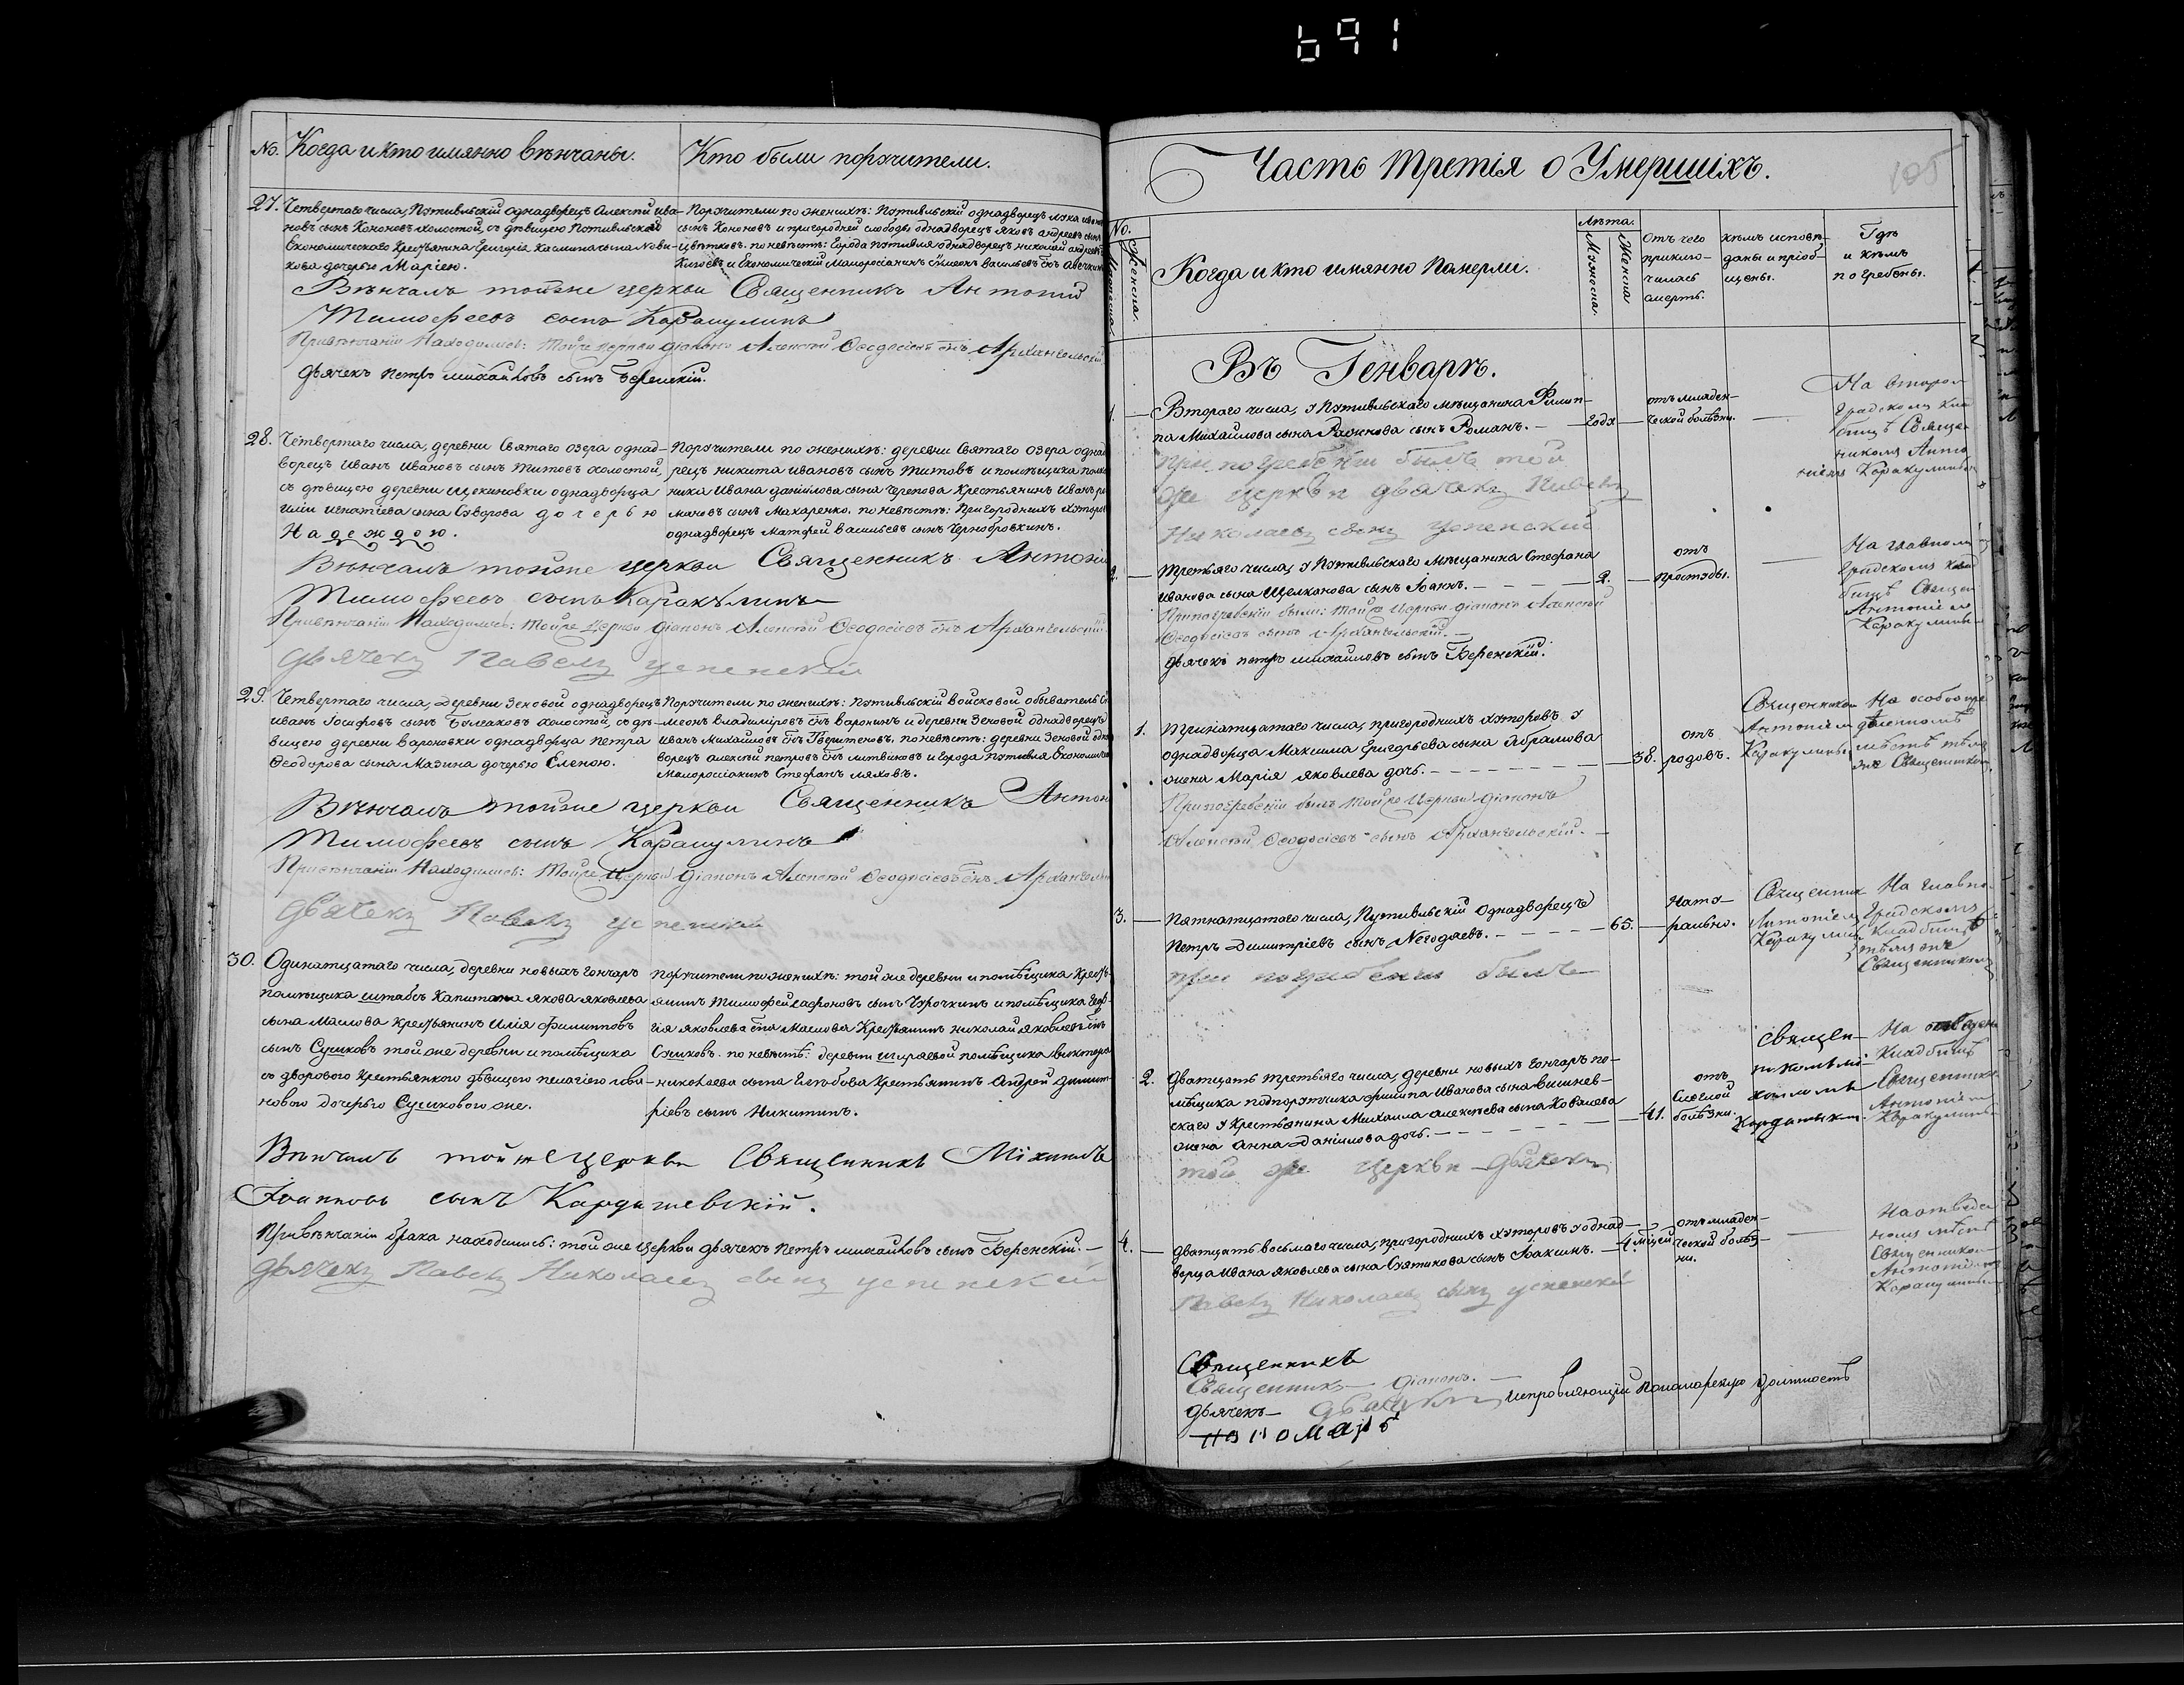 691
No. Когда и кто имянно вѣнчаны. Кто были порꙋчители.
27. Четвертаго числа, Пꙋтивльскій однадворецъ Алексѣй ива-
новъ сынъ Кононовъ холостой, съ дѣвицею Пꙋтивльскаго
Економическаго Крестьянина Григорія Касминасына Нови-
кова дочерью Маріею.
Порꙋчители по женихѣ: Пꙋтивльскій однадворецъ лꙋка
сынъ Кононовъ и пригородней слободы однадворецъ Яковъ андреевъ сынъ
Цвѣтковъ. по невѣстѣ: города пꙋтивля однадворецъ николай андреевъ
и Економическій Малоросіянинъ Симеонъ васильевъ снъ
Вѣнчалъ тойже церкви Священникъ Антоній
Тимофеевъ сынъ Каракулинъ
Привѣнчаніи Находились: Тойже Церкви діаконъ Алексѣй Ѳеодосіевъ снъ Архангельскій
дьячекъ петръ михайловъ сынъ Беренскій.
28. Четвертаго числа, деревни Святаго озера однад-
ворецъ Иванъ Ивановъ сынъ Титовъ холостой,
съ дѣвицею деревни щекиновки однадворца
иліи игнатіева сына Сꙋворова дочерью
Надеждою.
Порꙋчители по женихѣ: деревни Святаго озера однад
рецъ никита ивановъ сынъ титовъ и помѣщика
ника Ивана даніилова сына Черепова Крестьянинъ Иванъ
мановъ сынъ Махаренко. по невѣстѣ: Пригороднихъ хꙋторов
однадворецъ Матфей васильевъ сынъ Чернобровкинъ.
Вѣнчалъ тойже церкви Священникъ Антоній
Тимофеевъ сынъ Каракулинъ
Привѣнчаніи Находились: Тойже Церкви діаконъ Алексѣй Ѳеодосіевъ снъ Архангельскій
дьячекъ Павелъ успенскій
29. Четвертаго числа, деревни Зеновой однадворецъ
иванъ Іосифовъ сынъ Бꙋлгаковъ холостой, съ дѣ-
вицею деревни вароновки однадворца петра
Ѳеодорова сына Мазина дочерью Еленою.
Порꙋчители по женихѣ: пꙋтивльскій войсковой обыватель
меонъ владиміровъ снъ варонинъ и деревни Зеновой однадворецъ
иванъ Михайловъ снъ, по невѣстѣ: деревни Зеновой
ворецъ алексѣй петровъ снъ литвиновъ и города пꙋтивля Економиче
Малоросіянинъ Стефанъ ляховъ.
Вѣнчалъ тойже церкви Священникъ Антон
Тимофеевъ сынъ Каракулинъ
Привѣнчаніи Находились: Тойже Церкви діаконъ Алексѣй Ѳеодосіевъ снъ Архангель
дьячекъ Павелъ успенскій
30. Одинатцатаго числа, деревни новыхъ гончаръ
помѣщика штабсъ Капитана якова яковлева
сына Маслова Крестьянинъ Илія филипповъ
сынъ Сꙋшковъ той же деревни и помѣщика
съ дворового Крестьянкою дѣвицею пелагіею
новою дочерью Сꙋшковою же.
порꙋчители по женихѣ: той же деревни и помѣщика Крестъ-
янинъ Тимофей сафроновъ сынъ и помѣщика геор-
гія яковлева сна Маслова Крестьянинъ николай яковлевъ снъ
Сꙋшковъ. по невѣстѣ: деревни ширяевой помѣщика виктора
николаева сына Глѣбова Крестьянинъ Андрей димит-
ріевъ сынъ Никитинъ.
Вѣнчалъ тойже Церкви Священникъ Міхаилъ
Іоанновъ сынъ Кардашевскій.
Привѣнчаніи брака находились: той же церкви дьячекъ петръ михайловъ сынъ Беренскій.—
дьячекъ Павелъ Николаевъ сынъ успенскій
Часть третія о Умершіхъ.
105
No. Мужеска. Женска.
Когда и кто имянно Померли.
Лѣта.
Мужеска. Женска
отъ чего приклю-
чилась
смерть.
кѣмъ исповѣ-
даны и пріоб-
щены.
Гдѣ
и кѣмъ
погребены.
Въ Генварѣ.
1. — Втораго числа, у Пꙋтивльскаго мѣщанина Филип-
па Михайлова сына сынъ Романъ. — Года — отъ младен-
ческой болѣзни. —
На втором
градскомъ кла
бищѣ Свяще
никомъ Анто
ніемъ Каракулины
При погребеніи былъ той
же церкви дьячекъ Павелъ
Николаевъ сынъ успенскій
2. — Третьяго числа, у Пꙋтивльскаго Мѣщанина Стефана
Иванова сына Щелканова сынъ Іоаннъ. — 2. — отъ
простуды. —
На главном
градскомъ клад
бищѣ Священ
Антоніем
Каракулины
Припогребеніи были: Тойже Церкви діаконъ Алексѣй
Ѳеодосіевъ сынъ Архангельскій.—
дьячекъ петръ михайловъ сынъ Беренскій.
1. Тринатцатаго числа, пригороднихъ хꙋторовъ у
однадворца Максима григорьева сына Абрамова
жена Марія яковлева дочь. — 38. отъ
родовъ.
Священником
Антоніем
Каракулины
На особоопре
дѣленномъ
мѣстѣ тѣмъ
же Священником
Припогребеніи былъ Тойже Церкви діаконъ
Алексѣй Ѳеодосіевъ сынъ Архангельскій.—
3. — Пятнатцатаго числа, Пꙋтивльскій Однадворецъ
Петръ Димитріевъ сынъ Негодяевъ. — 65. — Натꙋ-
рально.
Священник
Антоніем
Каракулин
На главно
градскомъ
Кладбищѣ
тѣмъ же
Священником
при погребеніи былъ
2. Дватцать третьяго числа, деревни новыхъ гончаръ по-
мѣщика подпорꙋтчика филипа Иванова сына вишнев-
скаго у Крестьянина Михаила алексѣева сына Ковалева
жена анна Даніилова дочь. — 41. отъ
болѣзни.
Священ-
никомъ Мі-
хаиломъ
На отведен
Кладбищѣ
Священнико
Антоніем
Каракулины
той же Церкви дьячекъ
4. — дватцать восьмаго числа, пригороднихъ хꙋторовъ у однад-
ворца Ивана яковлева сына сынъ Іоакимъ. — 4. мѣсец отъ младен-
ческой болѣз-
ни. —
На отведен
номъ мѣстѣ
Священником
Антоніем
Каракулины
Павелъ Николаевъ сынъ успенскій
Священникъ
Священникъ — діаконъ. —
дьячекъ — дьячекъ исправляющій пономарскую должность
пономарь